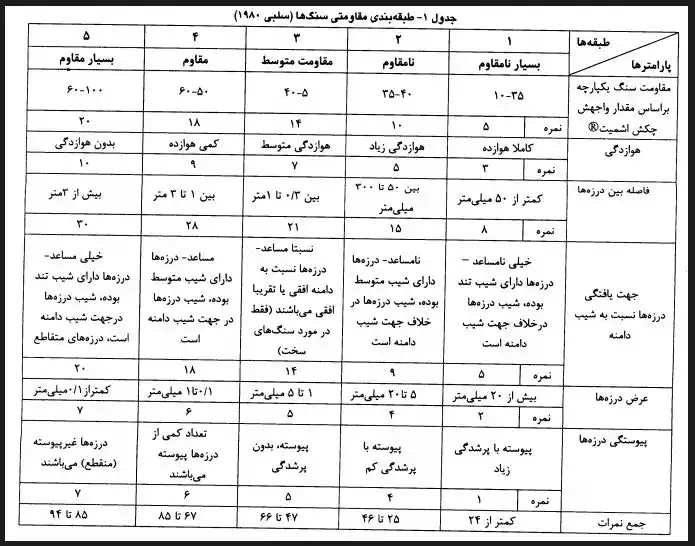 جدول ۱- طبقه‌بندی مقاومتی سنگ‌ها (سلبی ۱۹۸۰)
طبقه‌ها ۱ ۲ ۳ ۴ ۵
پارامترها بسیار نامقاوم نامقاوم مقاومت متوسط مقاوم بسیار مقاوم
مقاومت سنگ یکپارچه
براساس مقدار واجهش
چکش اشمیت®
۱۰-۳۵ ۳۵-۴۰ ۴۰-۵ ۶۰-۵۰ ۶۰-۱۰۰
نمره ۵ ۱۰ ۱۴ ۱۸ ۲۰
هوازدگی کاملا هوازده هوازدگی زیاد هوازدگی متوسط کمی هوازده بدون هوازدگی
نمره ۳ ۵ ۷ ۹ ۱۰
فاصله بین درزه‌ها
کمتر از ۵۰ میلی‌متر
بین ۵۰ تا ۳۰۰
میلی‌متر
بین ۰/۳ تا ۱متر
بین ۱ تا ۳ متر
بیش از ۳متر
نمره ۸ ۱۵ ۲۱ ۲۸ ۳۰
جهت یافتگی
درزه‌ها نسبت به شیب
دامنه
خیلی نامساعد –
درزه‌ها دارای شیب تند
بوده، شیب درزه‌ها
درخلاف جهت شیب
دامنه است
نامساعد- درزه‌ها
دارای شیب متوسط
بوده، شیب درزه‌ها در
خلاف جهت شیب
دامنه است
نسبتا مساعد-
درزه‌ها نسبت به
دامنه افقی یا تقریبا
افقی می‌باشند (فقط
در مورد سنگ‌های
سخت)
مساعد- درزه‌ها
دارای شیب متوسط
بوده، شیب درزه‌ها
در جهت شیب دامنه
است
خیلی مساعد-
درزه‌ها دارای شیب تند
بوده، شیب درزه‌ها
درجهت شیب دامنه
است، درزه‌های متقاطع
نمره ۵ ۹ ۱۴ ۱۸ ۲۰
عرض درزه‌ها بیش از ۲۰ میلی‌متر ۵ تا۲۰ میلی‌متر ۱ تا ۵ میلی‌متر ۰/۱تا۱ میلی‌متر کمتراز۰/۱میلی‌متر
نمره ۲ ۴ ۵ ۶ ۷
پیوستگی درزه‌ها
پیوسته با پرشدگی
زیاد
پیوسته با
پرشدگی کم
پیوسته، بدون
پرشدگی
تعداد کمی از
درزه‌ها پیوسته
می‌باشند
درزه‌ها غیرپیوسته
(منقطع) می‌باشند
نمره ۱ ۴ ۵ ۶ ۷
جمع نمرات کمتر از ۲۴ ۲۵ تا ۴۶ ۴۷ تا ۶۶ ۶۷ تا ۸۵ ۸۵ تا ۹۴